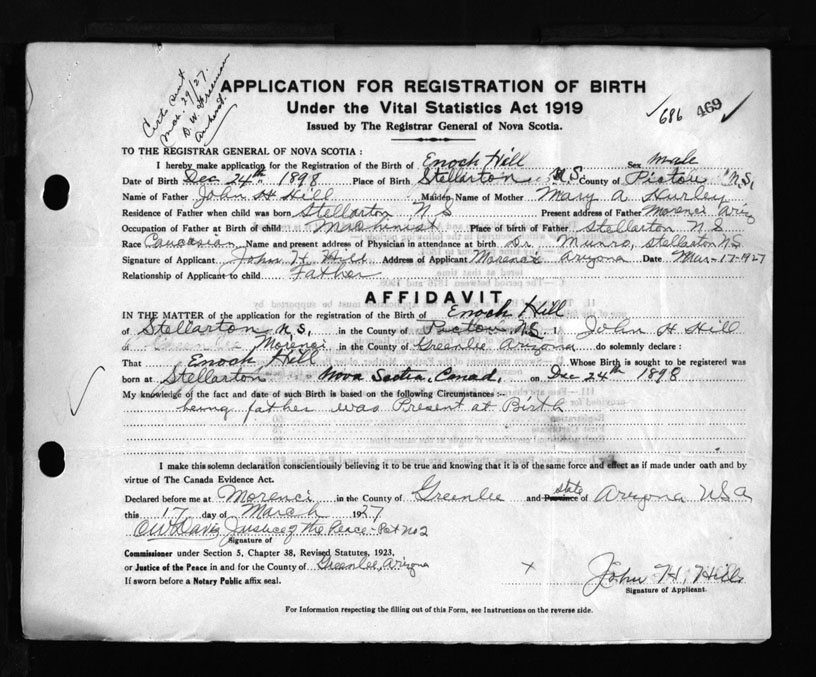 Mar. 29/27.
D. W. Freeman
Amherst.
APPLICATION FOR REGISTRATION OF BIRTH
Under the Vital Statistics Act 1919
Issued by The Registrar General of Nova Scotia.
686 469
TO THE REGISTRAR GENERAL OF NOVA SCOTIA :
I hereby make application for the Registration of the Birth of Enoch Hill Sex male
Date of Birth Dec 24th 1898 Place of Birth Stellarton N.S. County of Pictou N.S.
Name of Father John H Hill Maiden Name of Mother Mary A Hurley
Residence of Father when child was born Stellarton N S Present address of Father Morenci Ariz
Occupation of Father at Birth of child Machinist Place of birth of Father Stellarton N S
Race Caucasian Name and present address of Physician in attendance at birth Dr Munro, Stellarton NS
Signature of Applicant John H. Hill Address of Applicant Morenci Arizona Date Mar-17-1927
Relationship of Applicant to child Father
AFFIDAVIT
IN THE MATTER of the application for the registration of the Birth of Enoch Hill
of Stellarton N.S. in the County of Pictou N.S I John H Hill
Morenci in the County of Greenlee Arizona do solemnly declare :
That Enoch Hill Whose Birth is sought to be registered was
born at Stellarton Nova Scotia, Canad, on Dec 24th 1898
My knowledge of the fact and date of such Birth is based on the following Circumstances :-
being father was Present at Birth
I make this solemn declaration conscientiously believing it to be true and knowing that it is of the same force and effect as if made under oath and by
virtue of The Canada Evidence Act.
Declared before me at Morenci in the County of Greenlee and Province state of Arizona USA
this 17 day of March 1927
Davis Justice of the Peace - Pct No 2
Signature of
Commissioner under Section 5, Chapter 38, Revised Statutes, 1923,
or Justice of the Peace in and for the County of Greenlee, Arizona
If sworn before a Notary Public affix seal.
x John H. Hill
Signature of Applicant.
For Information respecting the filling out of this Form, see Instructions on the reverse side.